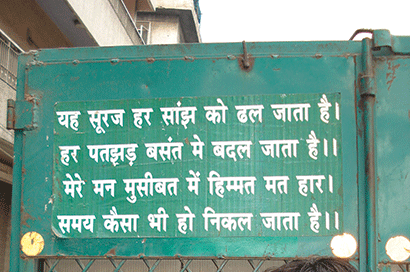 यह सूरज हर सांझ को ढल जाता है।
हर पतझड़ बसंत मे बदल जाता है।।
मेरे मन मुसीबत में हिम्मत मत हार।
समय कैसा भी हो निकल जाता है।।